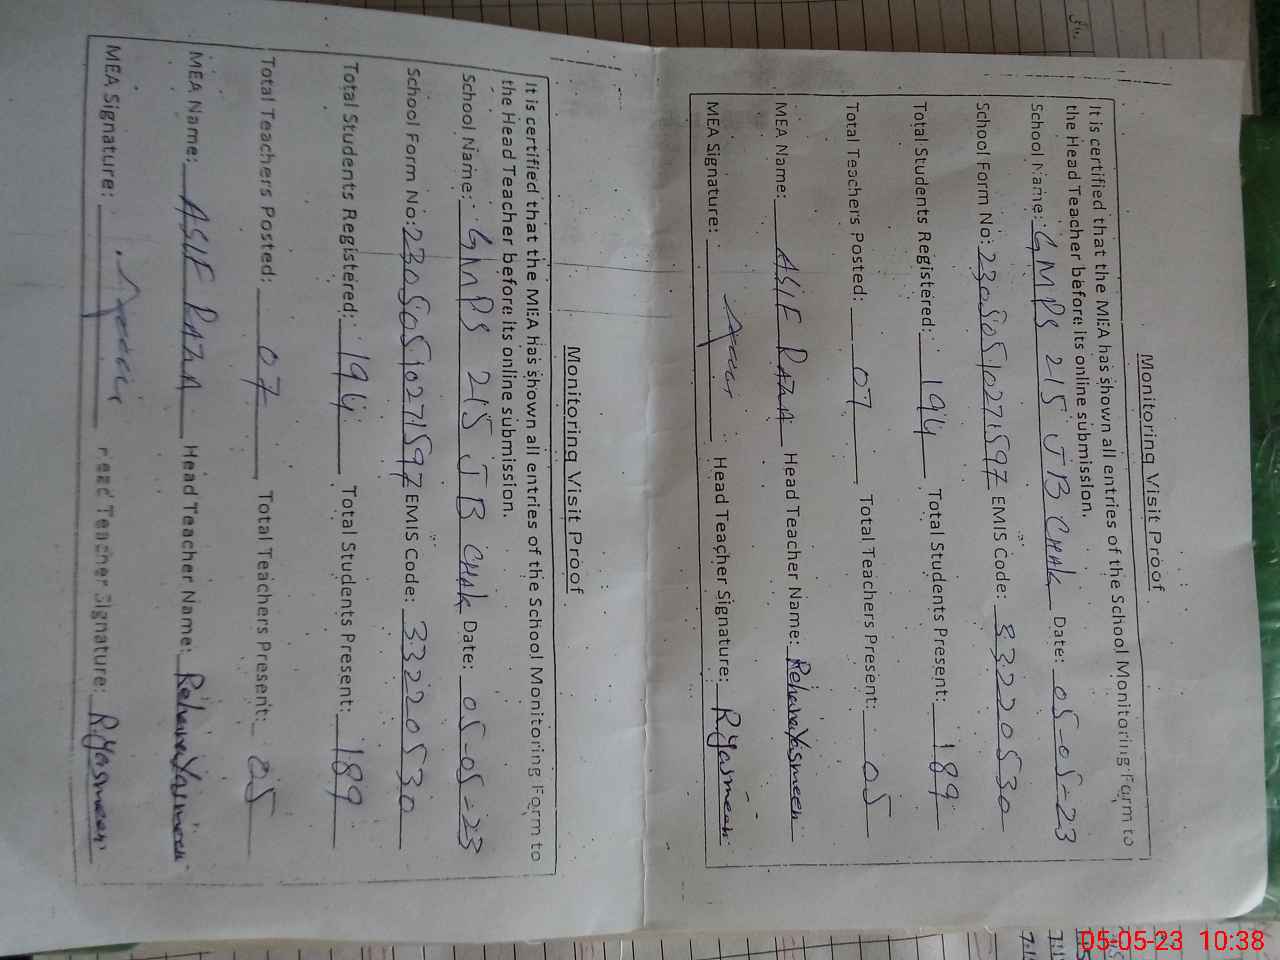 Monitoring Visit Proof
It is certified that the MEA has shown all entries of the School Monitoring Form to
the Head Teacher before its online submission.
School Name: GMPS 215 JB CHAK Date: 05-05-23
School Form No: 23050510271597 EMIS Code: 33220530
Total Students Registered: 194 Total Students Present: 189
Total Teachers Posted: 07 Total Teachers Present: 05
MEA Name: ASIF RAZA Head Teacher Name: Rehana Yasmeen
MEA Signature: Head Teacher Signature: R.Yasmeen
Monitoring Visit Proof
It is certified that the MEA has shown all entries of the School Monitoring Form to
the Head Teacher before its online submission.
School Name: GMPS 215 JB CHAK Date: 05-05-23
School Form No: 23050510271597 EMIS Code: 33220530
Total Students Registered: 194 Total Students Present: 189
Total Teachers Posted: 07 Total Teachers Present: 05
MEA Name: ASIF RAZA Head Teacher Name: Rehana Yasmeen
MEA Signature: Head Teacher Signature: R.Yasmeen
05-05-23 10:38